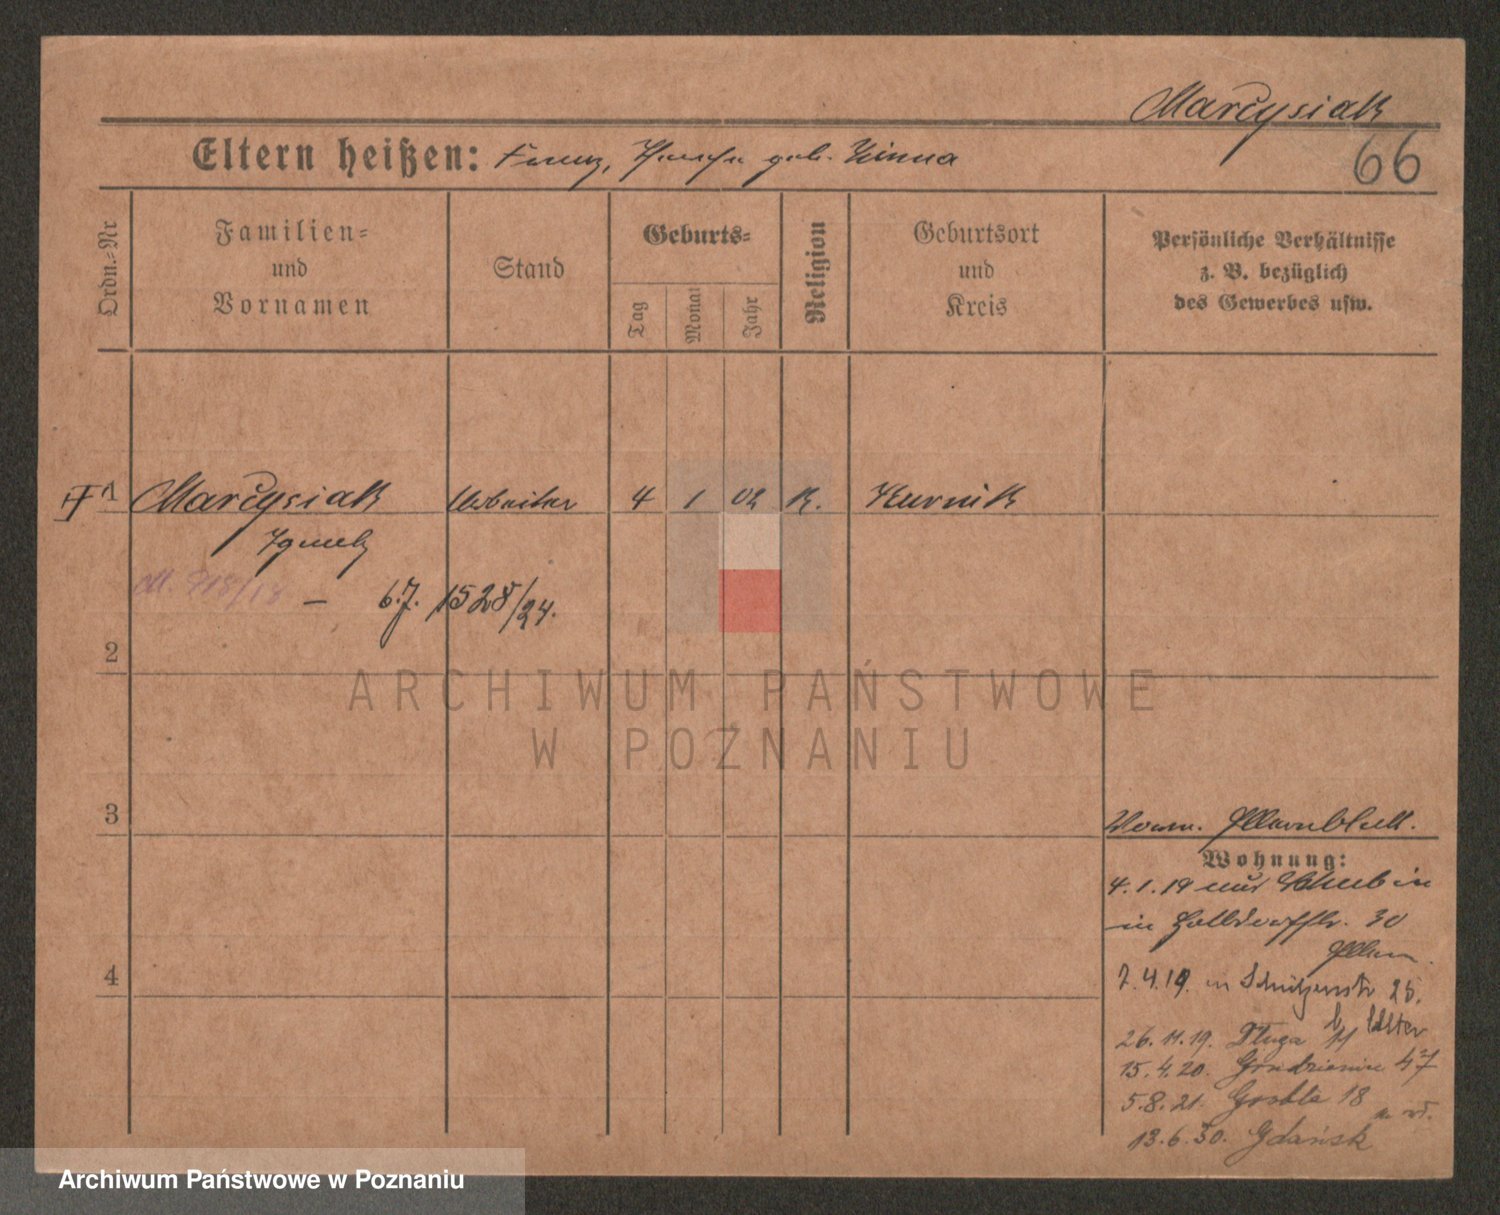 Marcysiak
66
Eltern heißen: Franz, geb. Zimna
Ordn.=Nr
Familien=
und
Vornamen
Stand
Geburts=
Tag
Monat
Jahr
Religion
Geburtsort
und
Kreis
Persönliche Verhältnisse
z. B. bezüglich
des Gewerbes usw.
1 Marcysiak Arbeiter 4 1 02 K. Kurnik
Ignatz
– 6.7. 1528/24.
2
ARCHIWUM PAŃSTWOWE
W POZNANIU
3
Wohnung:
4.1.19 aus Schubin
in 30
4
7.4.19. in Schützenstr 25.
b. Eltern
26.11.19. Długa 11
15.4.20. 47
5.8.21. Grobla 18
13.6.30. Gdańsk
Archiwum Państwowe w Poznaniu